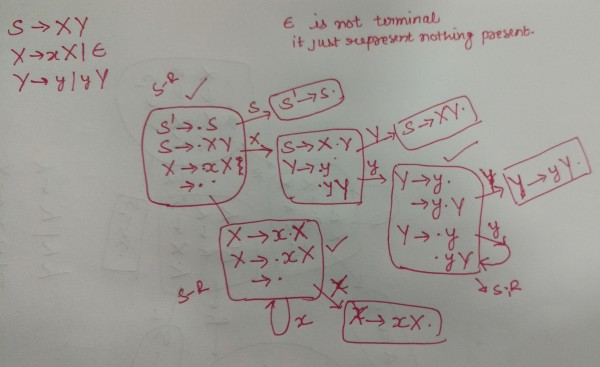 S→XY
X→xX|ϵ
Y→y|yY
ϵ is not terminal
it just represent nothing present.
S-R ✓
S'→.S
S→.XY
X→.xX}
→.
S
S'→S.
X
S→X.Y
Y→.y
.yY
Y
S→XY.
y
✓
Y→y.
→y.Y
Y→.y
.yY
Y
Y→yY.
y
S-R
X→x.X
X→.xX
→.
✓
S-R
x
X
X→xX.